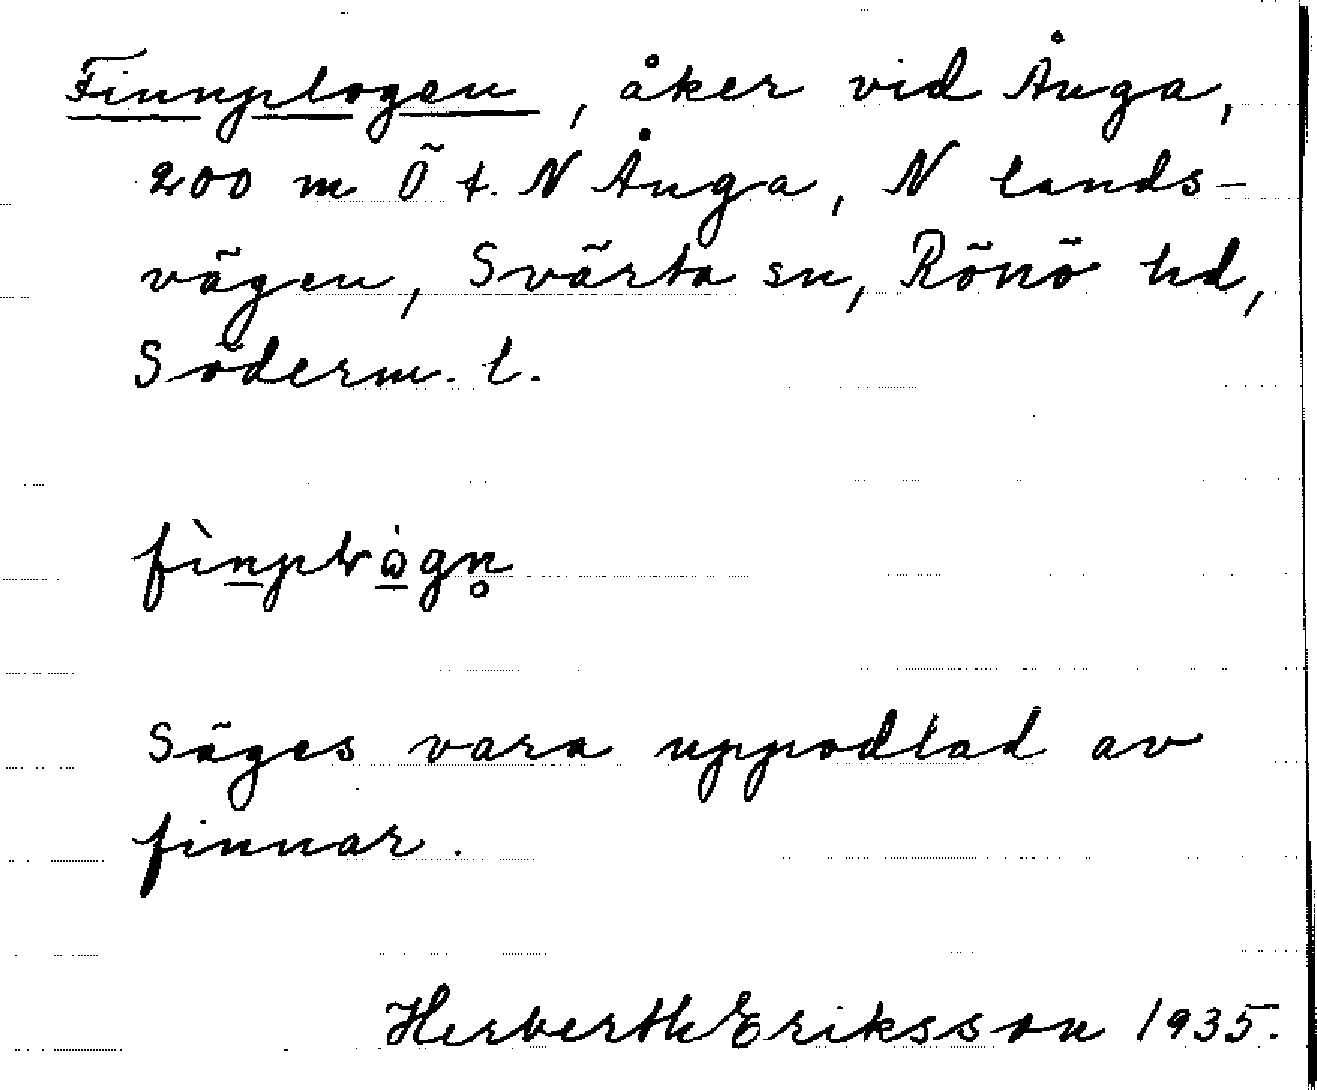 Finnplogen, åker vid Ånga,
200 m Ö f. N Ånga, N lands-
vägen, Svärta sn, Rönö hd,
Söderm. l.
Säges vara uppodlad av
finnar.
Herberth Eriksson 1935.